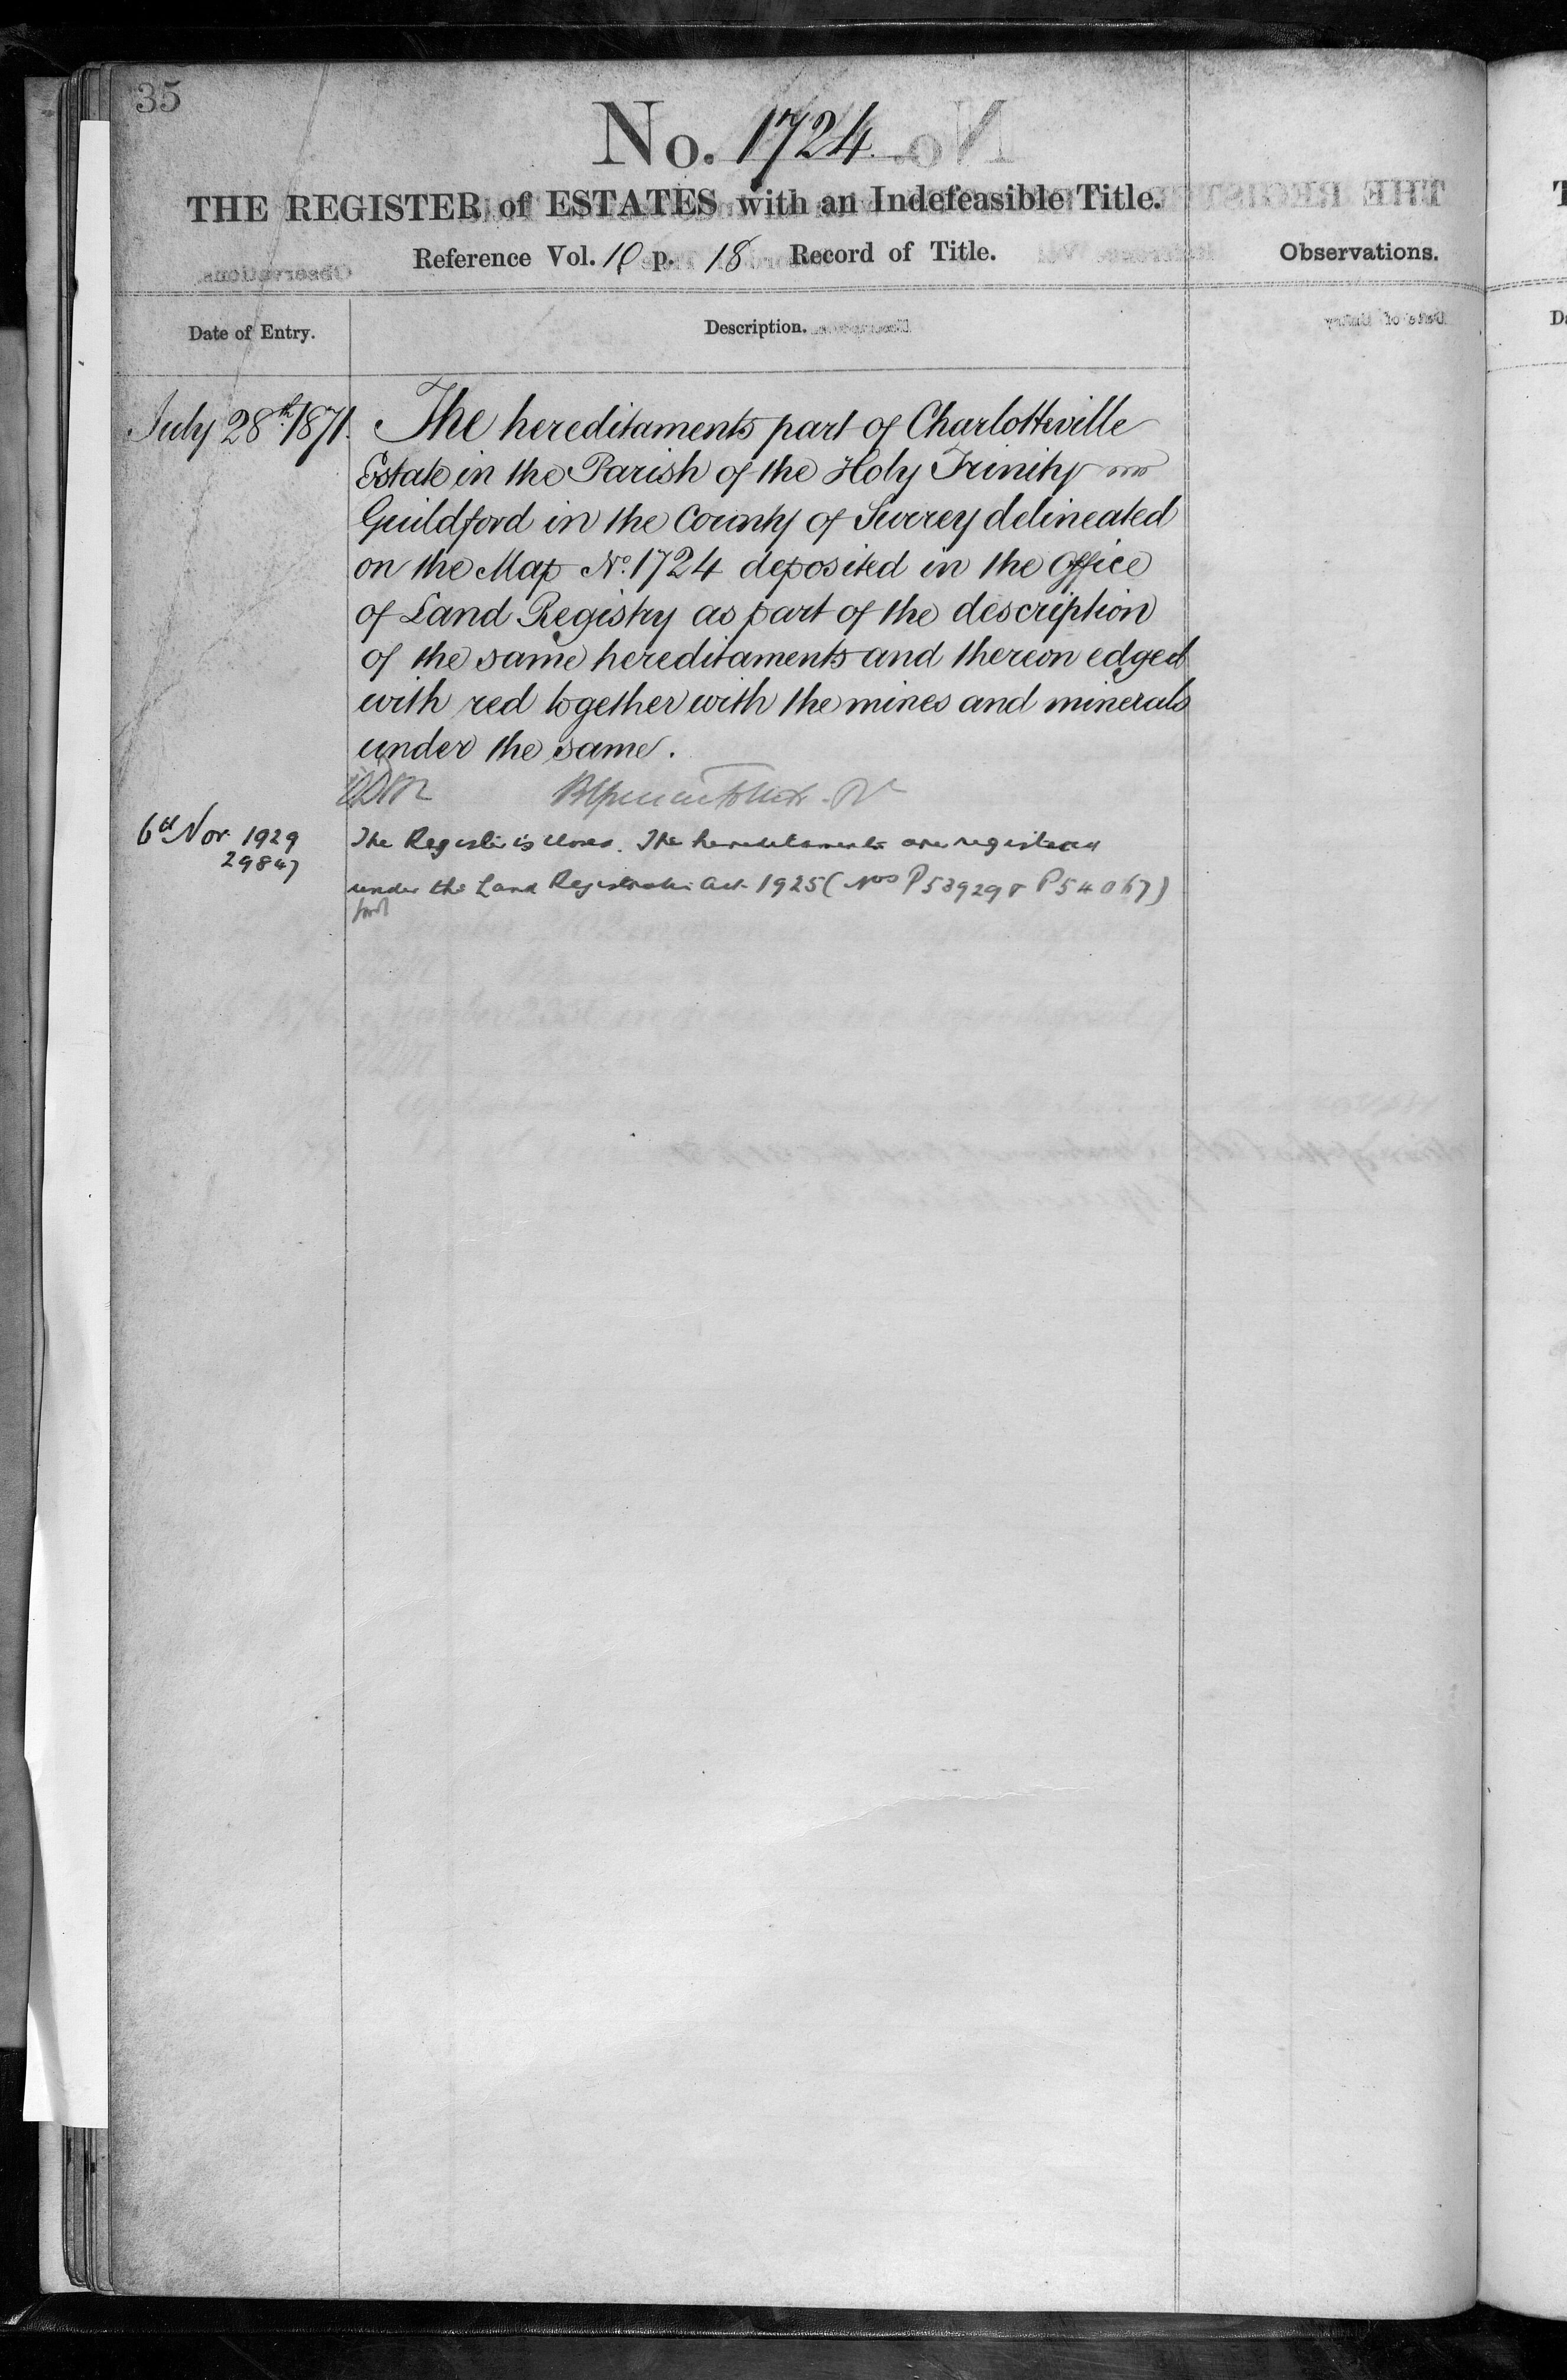 35
No. 1724.
THE REGISTER of ESTATES with an Indefeasible Title.
Reference Vol. 10 p. 18 Record of Title.
Observations.
Date of Entry.
Description.
July 28th. 1871.
The hereditaments part of Charlotteville
Estate in the Parish of the Holy Trinity
Guildford in the County of Surrey delineated
on the Map No. 1724 deposited in the Office
of Land Registry as part of the description
of the same hereditaments and thereon edged
with red together with the mines and minerals
under the same.
6th Nov. 1929
29847
The Register is closed. The hereditaments are registered
under the Land Registration Act 1925 (Nos P53929 & P54067)